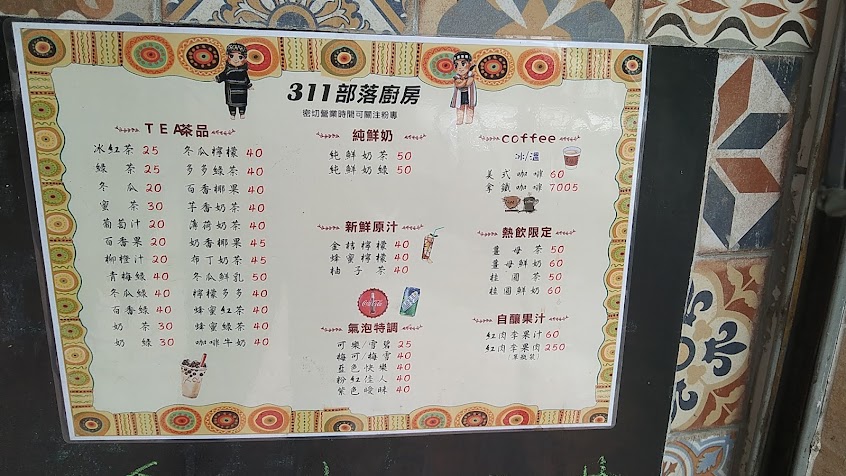 311部落廚房
密切營業時間可關注粉專
TEA茶品
冰紅茶 25
綠茶 25
冬瓜 20
蜜茶 30
葡萄汁 20
百香果 20
柳橙汁 20
青梅綠 40
冬瓜綠 40
百香綠 40
奶茶 30
奶綠 30
冬瓜檸檬 40
多多綠茶 40
百香椰果 40
芋香奶茶 40
薄荷奶茶 40
奶香椰果 45
布丁奶茶 45
冬瓜鮮乳 50
檸檬多多 40
蜂蜜紅茶 40
蜂蜜綠茶 40
咖啡牛奶 40
純鮮奶
純鮮奶茶 50
純鮮奶綠 50
新鮮原汁
金桔檸檬 40
蜂蜜檸檬 40
柚子茶 40
Coca-Cola
氣泡特調
可樂/雪碧 25
梅可/梅雪 40
藍色快樂 40
粉紅佳人 40
紫色曖昧 40
coffee
冰/溫
美式咖啡 60
拿鐵咖啡 7005
熱飲限定
薑母茶 50
薑母鮮奶 60
桂圓茶 50
桂圓鮮奶 60
自釀果汁
紅肉李果汁 60
紅肉李果肉 250
(單瓶裝)